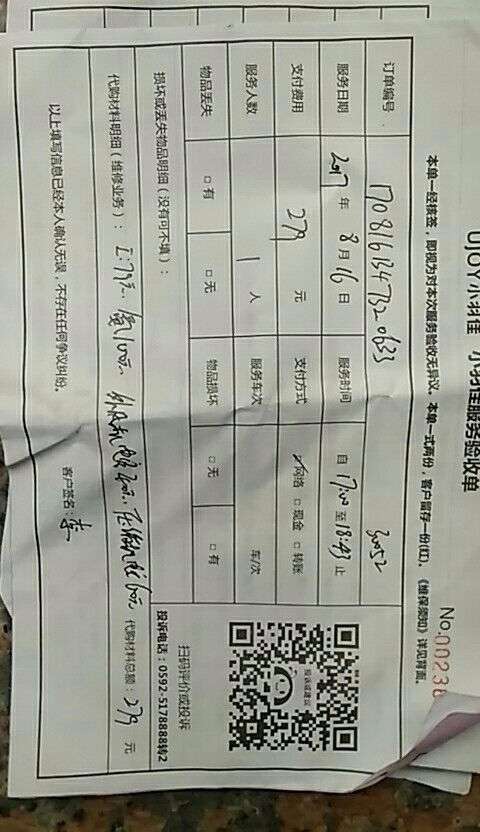 UJOY小羽佳 小羽佳服务验收单
No.00236
本单一经接签，即视为对本次服务验收无异议。本单一式两份，客户留存一份(红)。《维保须知》详见背面。
订单编号 1708161347320633 30052
服务日期 2017 年 8 月 16 日 服务时间 自 17:00 至 18:43 止
支付费用 279 元 支付方式 ☑网络 □现金 □转账
服务人数 1 人 服务车次 车/次
物品丢失 □有 □无 物品损坏 □无 □有
损坏或丢失物品明细（没有可不填）：
代购材料明细（维修业务）：工:79元. 氟100元. 代购材料总额：279 元
以上填写信息已经本人确认无误，不存在任何争议纠纷。 客户签名：李
扫码评价或投诉
投诉电话：0592-5178888转2